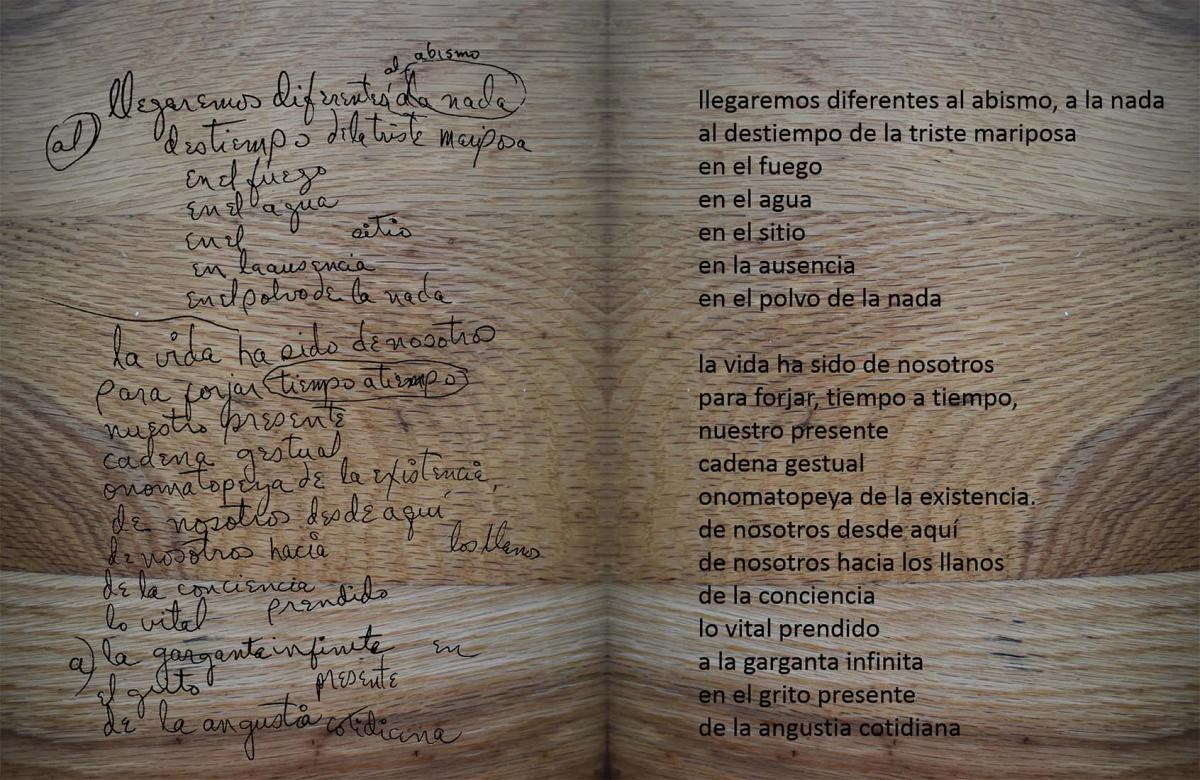 al abismo
llegaremos diferentes a la nada
al destiempo de la triste mariposa
en el fuego
en el agua
en el sitio
en la ausencia
en el polvo de la nada
la vida ha sido de nosotros
para forjar tiempo a tiempo
nuestro presente
cadena gestual
onomatopeya de la existencia,
de nosotros desde aquí
de nosotros hacia los llanos
de la conciencia
lo vital prendido
a) la garganta infinita en
el grito presente
de la angustia cotidiana
llegaremos diferentes al abismo, a la nada
al destiempo de la triste mariposa
en el fuego
en el agua
en el sitio
en la ausencia
en el polvo de la nada
la vida ha sido de nosotros
para forjar, tiempo a tiempo,
nuestro presente
cadena gestual
onomatopeya de la existencia.
de nosotros desde aquí
de nosotros hacia los llanos
de la conciencia
lo vital prendido
a la garganta infinita
en el grito presente
de la angustia cotidiana